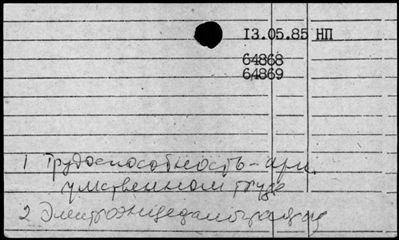 13.05.85 НП
64868
64869
1 Трудоспособность - при
умственном труде
2 Электроэнцефалография